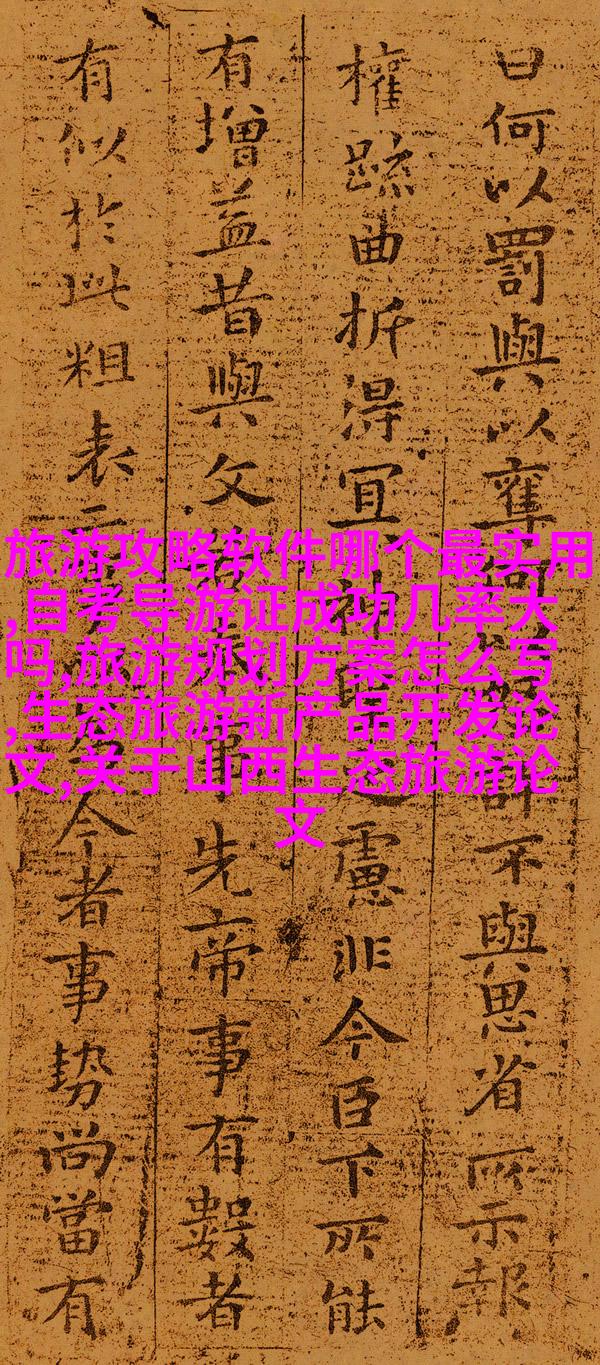 曰何以罰與以奪許不與思省所示報
權疏曲折得冝神慮非今臣下所能
有增益昔與文事先帝事有數者
有似於此粗表二今者事勢尚當有
旅游攻略软件哪个最实用
,自考导游证成功几率大
吗,旅游规划方案怎么写
,生态旅游新产品开发论
文,关于山西生态旅游论
文